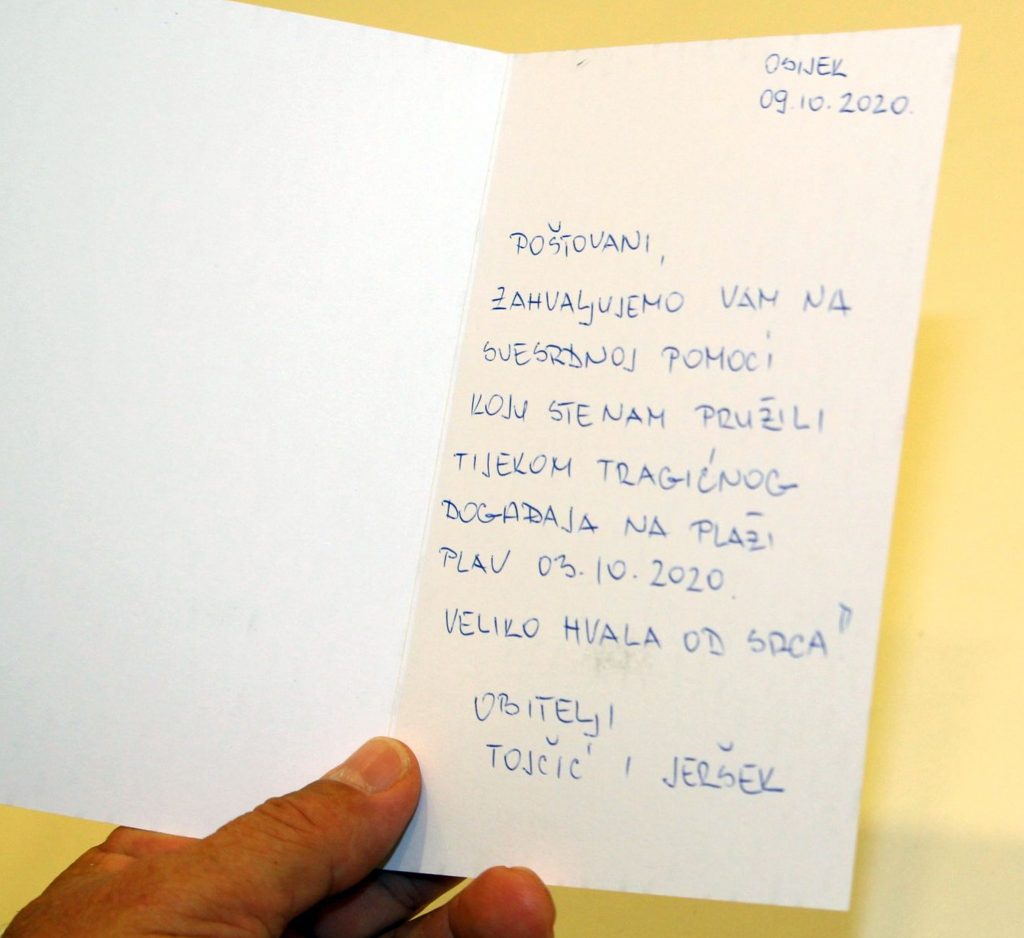 OSIJEK
09.10.2020.
POŠTOVANI,
ZAHVALJUJEMO VAM NA
SVESRDNOJ POMOĆI
KOJU STE NAM PRUŽILI
TIJEKOM TRAGIĆNOG
DOGAĐAJA NA PLAŽI
PLAV 03.10.2020.
VELIKO HVALA OD SRCA"
OBITELJI
TOJČIĆ I JERŠEK